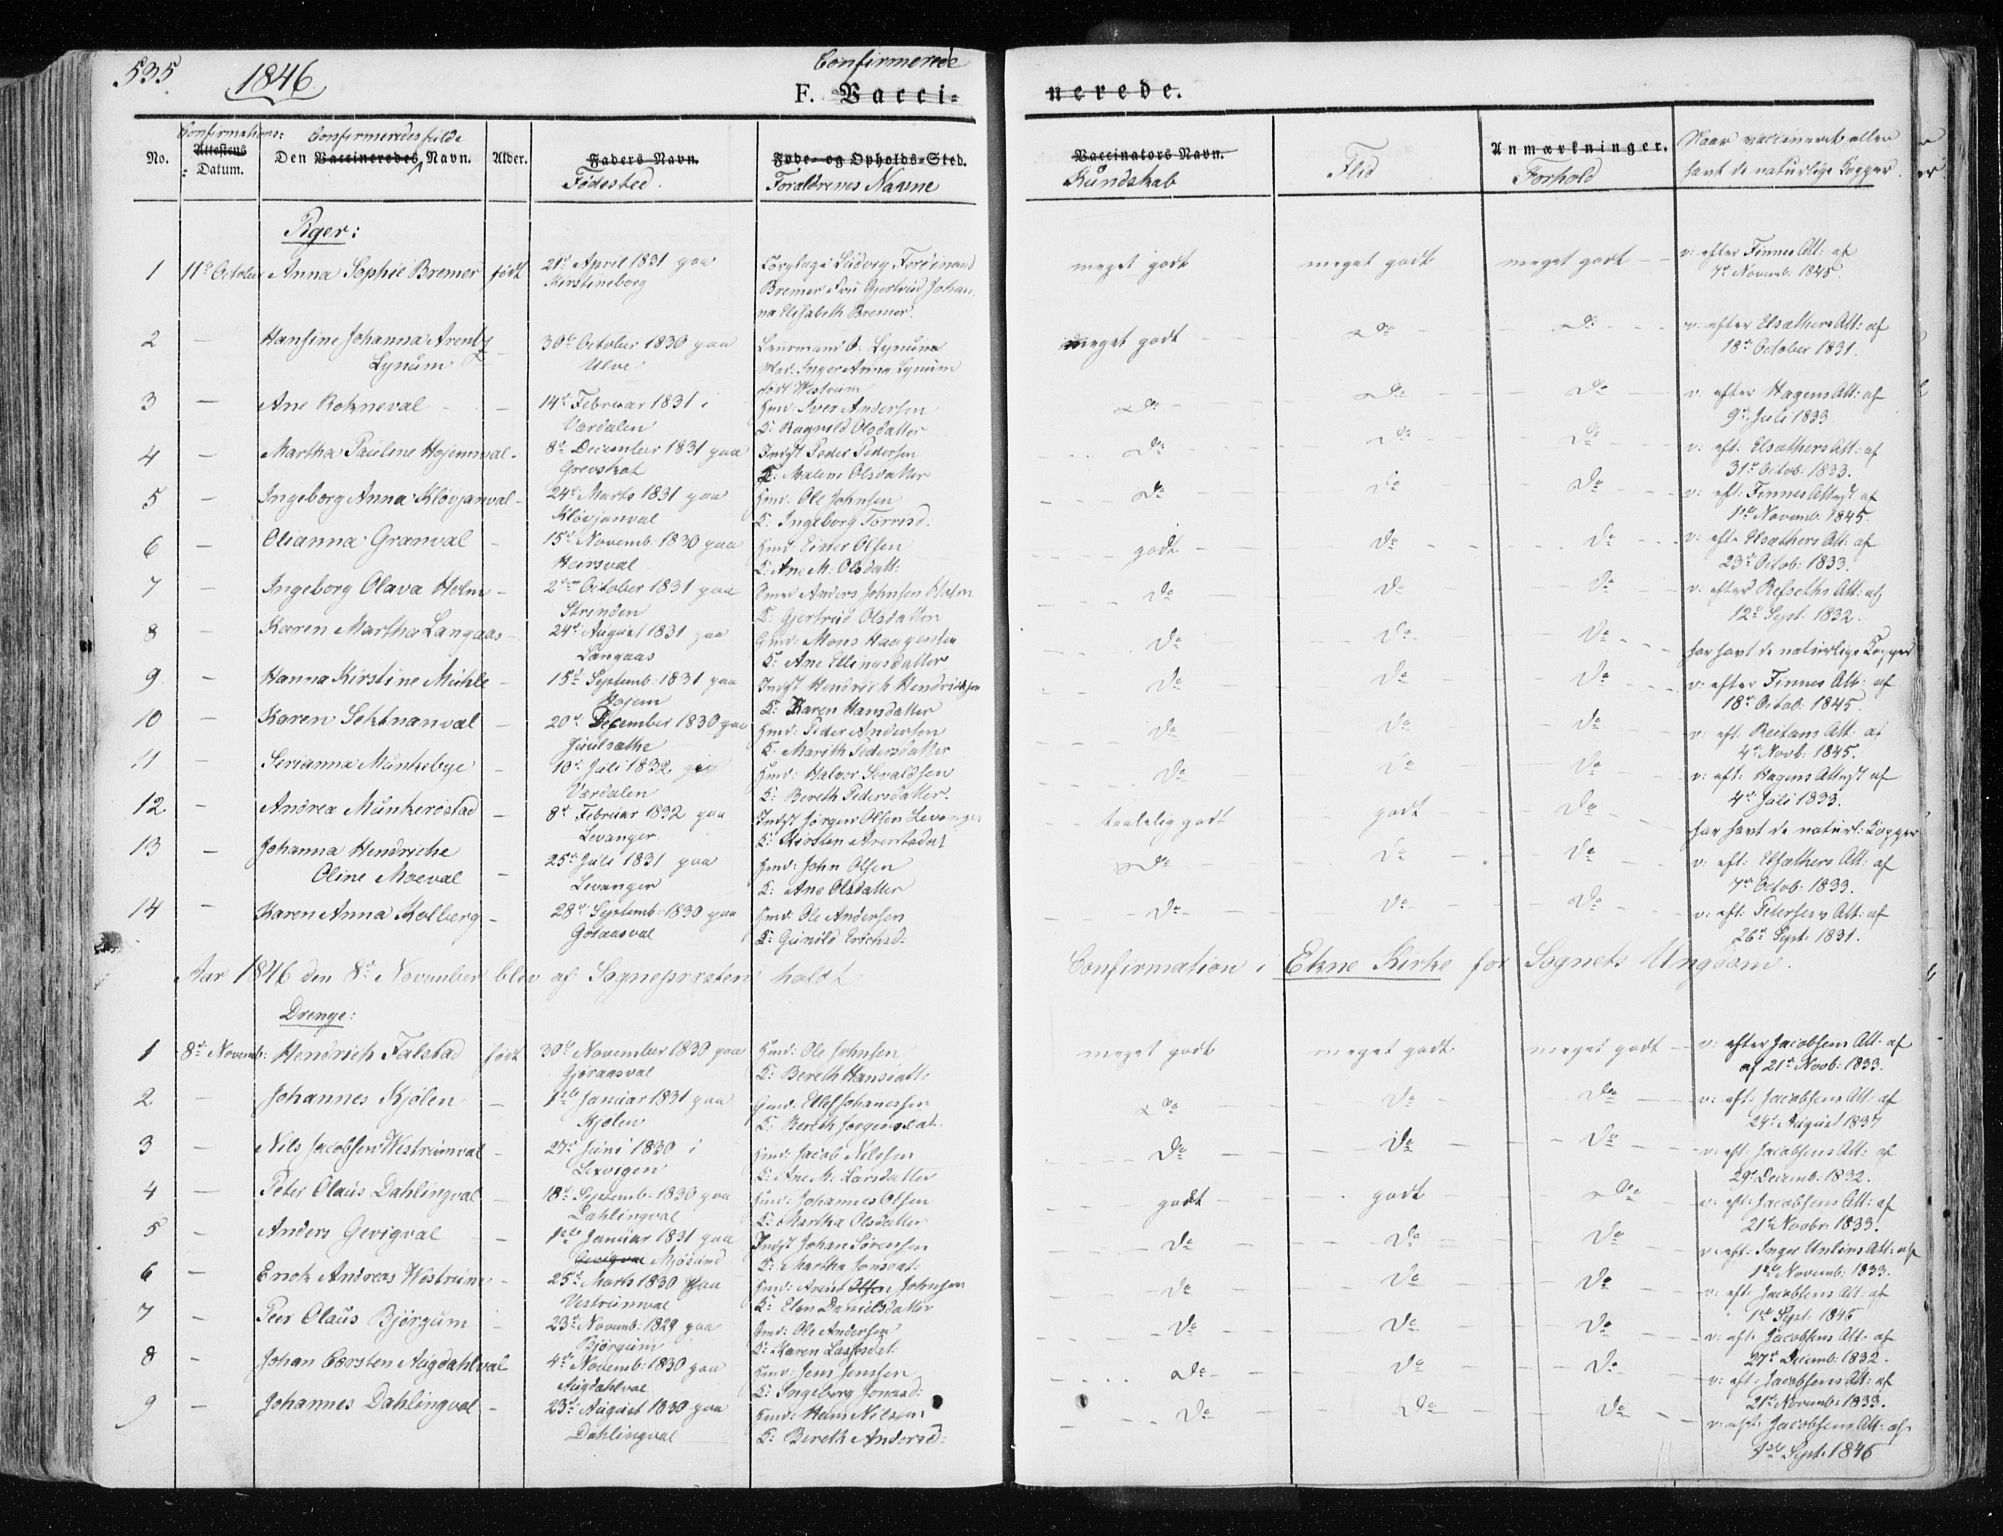 535.
1846.
Confirmerede
F. Vacci=
nerede.
No.
Confirmations:
Attestens
Datum.
Confirmeredes fulde
Den Vaccineredes Navn.
Alder.
Faders Navn.
Fødested.
Føde- og Opholds-Sted.
Forældrenes Navne
Vaccinators Navn.
Kundskab
Flid
Anmærkninger.
Forhold
Naar vaccineret eller
havt de naturlige Kopper.
Piger:
1 11te October Anna Sophie Bremer født 21de April 1831 paa Ludvig Ferdinand meget godt meget godt meget godt v: efter Finnes Att: af
Kerstineborg Bremer Fru Gjertrud Johan- 7de Novemb: 1845.
na Elisabeth Bremer.
2 — Hansine Johanna Arentz — 30te October 1830 paa Lynum meget godt do do v: efter Elsæthers Att: af
Lynum Ulve Mad. Inger Anna Lynum 18de October 1831.
født Westrum
3 — Ane Rokneval — 14de Februar 1831 i Hmd: Iver Andersen do do do v: efter Hagens Att: af
Værdalen K: Ragnild Olsdatter 9de Juli 1833
4 — Martha Pauline Hojemsval — 8de December 1831 paa Indst Peder Pedersen do do do v: eft: Elsæthers Att: af
K: Malene Olsdatter 31te Octob: 1833.
5 — Ingeborg Anna Kløvjanval — 24de Marts 1831 paa Hmd: Ole Johnsen do do do v: eft: Finnes Attest af
Kløvjanval K: Ingeborg Torrisd. 1ste Novemb: 1845.
6 — Olianna Granval — 15de Novemb: 1830 paa Hmd: Einer Olsen godt do do v: eft: Elsæthers Att: af
Heirsval K: Ane M: Olsdatt: 23de Octob: 1833.
7 — Ingeborg Olava Holm — 2den October 1831 paa Anders Johnsen Holm do do do v: efter Refseths Att: af
Strinden K: Gjertrud Olsdatter 12te Sept: 1832.
8 Karen Martha Langaas — 24de August 1831 paa Gmd: Mons Haagensen do do do har havt de naturlige Kopper
Langaas K: Ane Ellingsdatter
9 — Hanna Kirstine Mühle — 15de Septemb: 1831 paa Indst Hendrich Hendrichsen do do do v: efter Finnes Att: af
Hojem K: Karen Hansdatter 18de Octob: 1845.
10 — Karen Sextnanval — 20de December 1830 paa Hmd: Peder Andersen do do do v: eft: Reitans Att: af
K: Marith Pedersdatter 4de Novb: 1845.
11 — Serianna Munkebye — 10de Juli 1832 paa Hmd: Halvor Sevaldsen do do do v: eft: Hagens Attest af
Værdalen K: Bereth Pedersdatter. 4de Juli 1833.
12 — Andrea Munkerøstad — 8de Februar 1832 paa Indst Jørgen Olsen Levanger taalelig godt godt do har havt de naturl: Kopper
Levanger. K: Kirsten Arentsdat
13 — Johanna Hendriche 25de Juli 1831 paa Hmd: John Olsen do do do v: eft: Elsæthers Att: af
Oline Moeval — Levanger K: Ane Olsdatter 7de Octob: 1833.
14 — Karen Anna Kolberg — 28de Septemb: 1830 paa Hmd: Ole Andersen do do do v: eft: Petersens Att: af
Goraasval K: Gunild Erichsd: 26de Sept: 1831.
Aar 1846 den 8de November blev af Sognepræsten holdt Confirmation i Ekne Kirke for Sognets Ungdom.
Drenge:
1 8de Novemb: Hendrich Falstad født 30te November 1830 paa Hmd: Ole Johnsen meget godt meget godt meget godt v: efter Jacobsens Att: af
Gjøraasval K: Bereth Hansdatt: af 21de Novb: 1833.
2 — Johannes Kjølen — 1ste Januar 1831 paa Gmd: Ellef Johanessen do do do v: eft: Jacobsens Att: af
Kjølen K: Bereth Jørgensdat. 24de August 1837
3 — Nils Jacobsen Westrumval — 27de Juni 1830 i Hmd: Jacob Nilsen do do do v: eft: Jacobsens Att: af
Lexvigen K: Ane M: Larsdatter 29de Decemb: 1832.
4 — Peter Olaus Dahlingval — 18de Septemb: 1830 paa Hmd: Johannes Olsen godt godt do v: eft: Jacobsens Att: af
Dahlingval K: Martha Olsdatter 21de Novbr 1833.
5 — Anders Gevigval — 1ste Januar 1831 paa Indst Johan Sørensen do do do v: eft: Inger Unlins Att: af
Gevigval Mosand K: Martha Jonsdat: 1ste Novemb: 1833.
6 — Erich Andreas Westrum — 25de Marts 1830 paa Hmd: Arent Olsen Johnsen do do do v: eft: Jacobsens Att: af
Vestrumval K: Elen Danielsdatter 1ste Sept: 1846
7 — Peer Olaus Bjørgum — 23de Novemb: 1829 paa Gmd: Ole Andersen do do do v: eft: Jacobsens Att: af
Bjørgum K: Karen Lassesdat: 27de Decemb: 1832.
8 — Johan Carsten Augdahlval 4de Novemb: 1830 paa Hmd: Jens Jensen do do do v: eft: Jacobsens Att: af
Augdahlval K: Ingeborg Jonasd: 21de Novemb: 1833.
9 — Johannes Dahlingval — 23de August 1830 paa Hmd: Hans Nilsen do do do v: eft: Jacobsens Att: af
Dahlingval K: Bereth Andersd: 1ste Sept: 1846